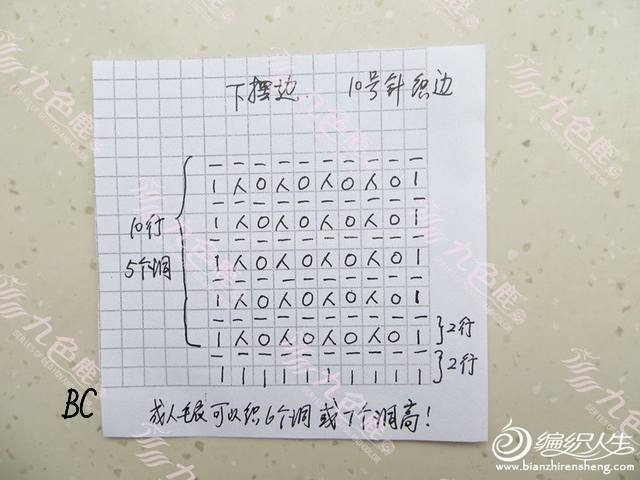 下摆边 10号针织边
— — — — — — — — — —
1 人 O 人 O 人 O 人 O 1
— — — — — — — — — —
1 人 O 人 O 人 O 人 O 1
10行
— — — — — — — — — —
5个洞
1 人 O 人 O 人 O 人 O 1
— — — — — — — — — —
1 人 O 人 O 人 O 人 O 1
— — — — — — — — — —
1 人 O 人 O 人 O 人 O 1 }2行
— — — — — — — — — —
1 1 1 1 1 1 1 1 1 1 }2行
BC
成人毛衣可以织6个洞或7个洞高!
九色鹿
编织人生
www.bianzhirensheng.com